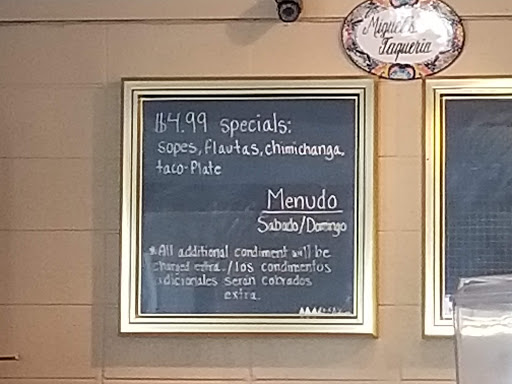 Miguel's
Taqueria
$4.99 specials:
sopes, flautas, chimichanga,
taco-Plate
Menudo
Sabado/Domingo
*All additional condiment will be
charged extra. / los condimentos
adicionales serán cobrados
extra.